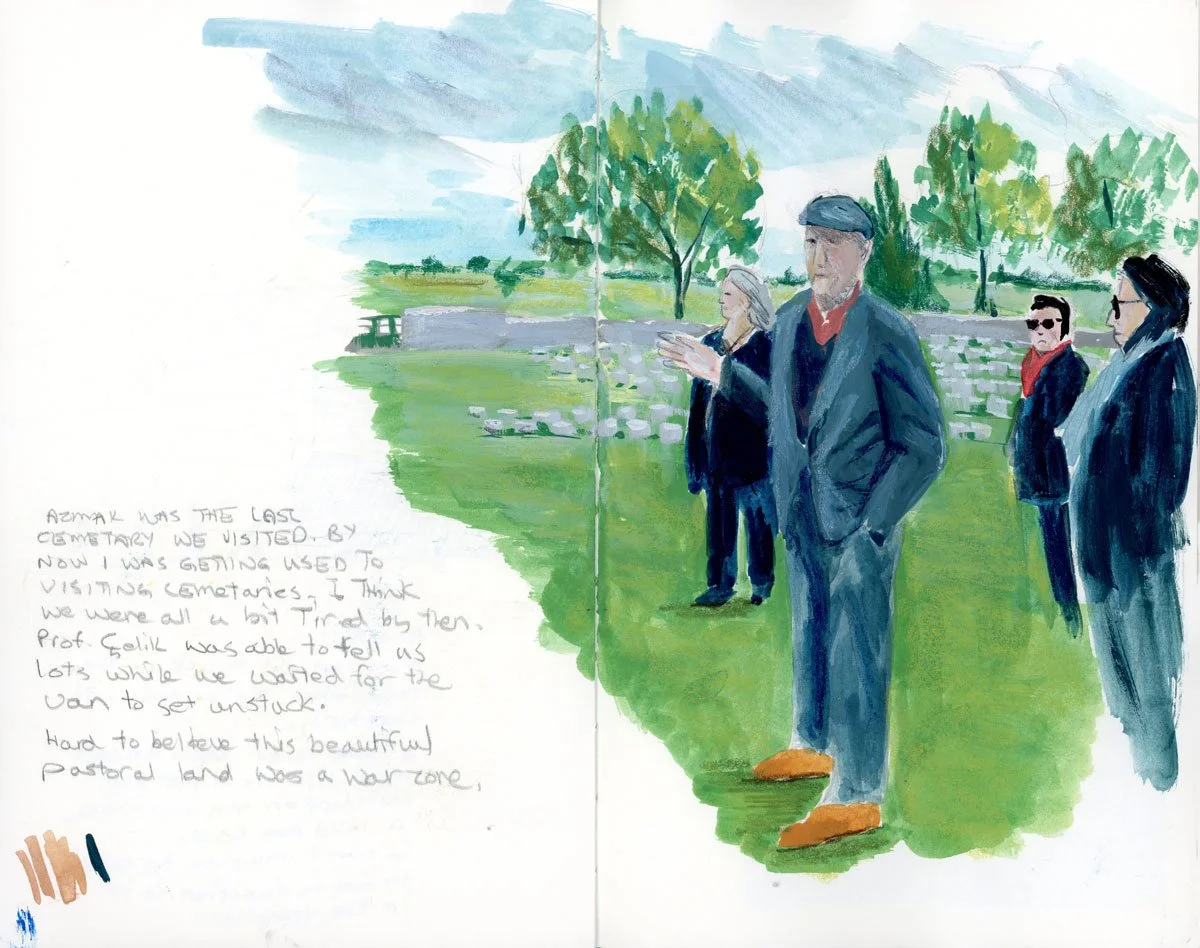 AZMAK WAS THE LAST
CEMETARY WE VISITED. BY
NOW I WAS GETTING USED TO
VISITING cemetaries. I Think
we were all a bit Tired by then.
Prof. Çelik was able to tell us
lots while we waited for the
van to get unstuck.
Hard to believe this beautiful
pastoral land was a war zone.